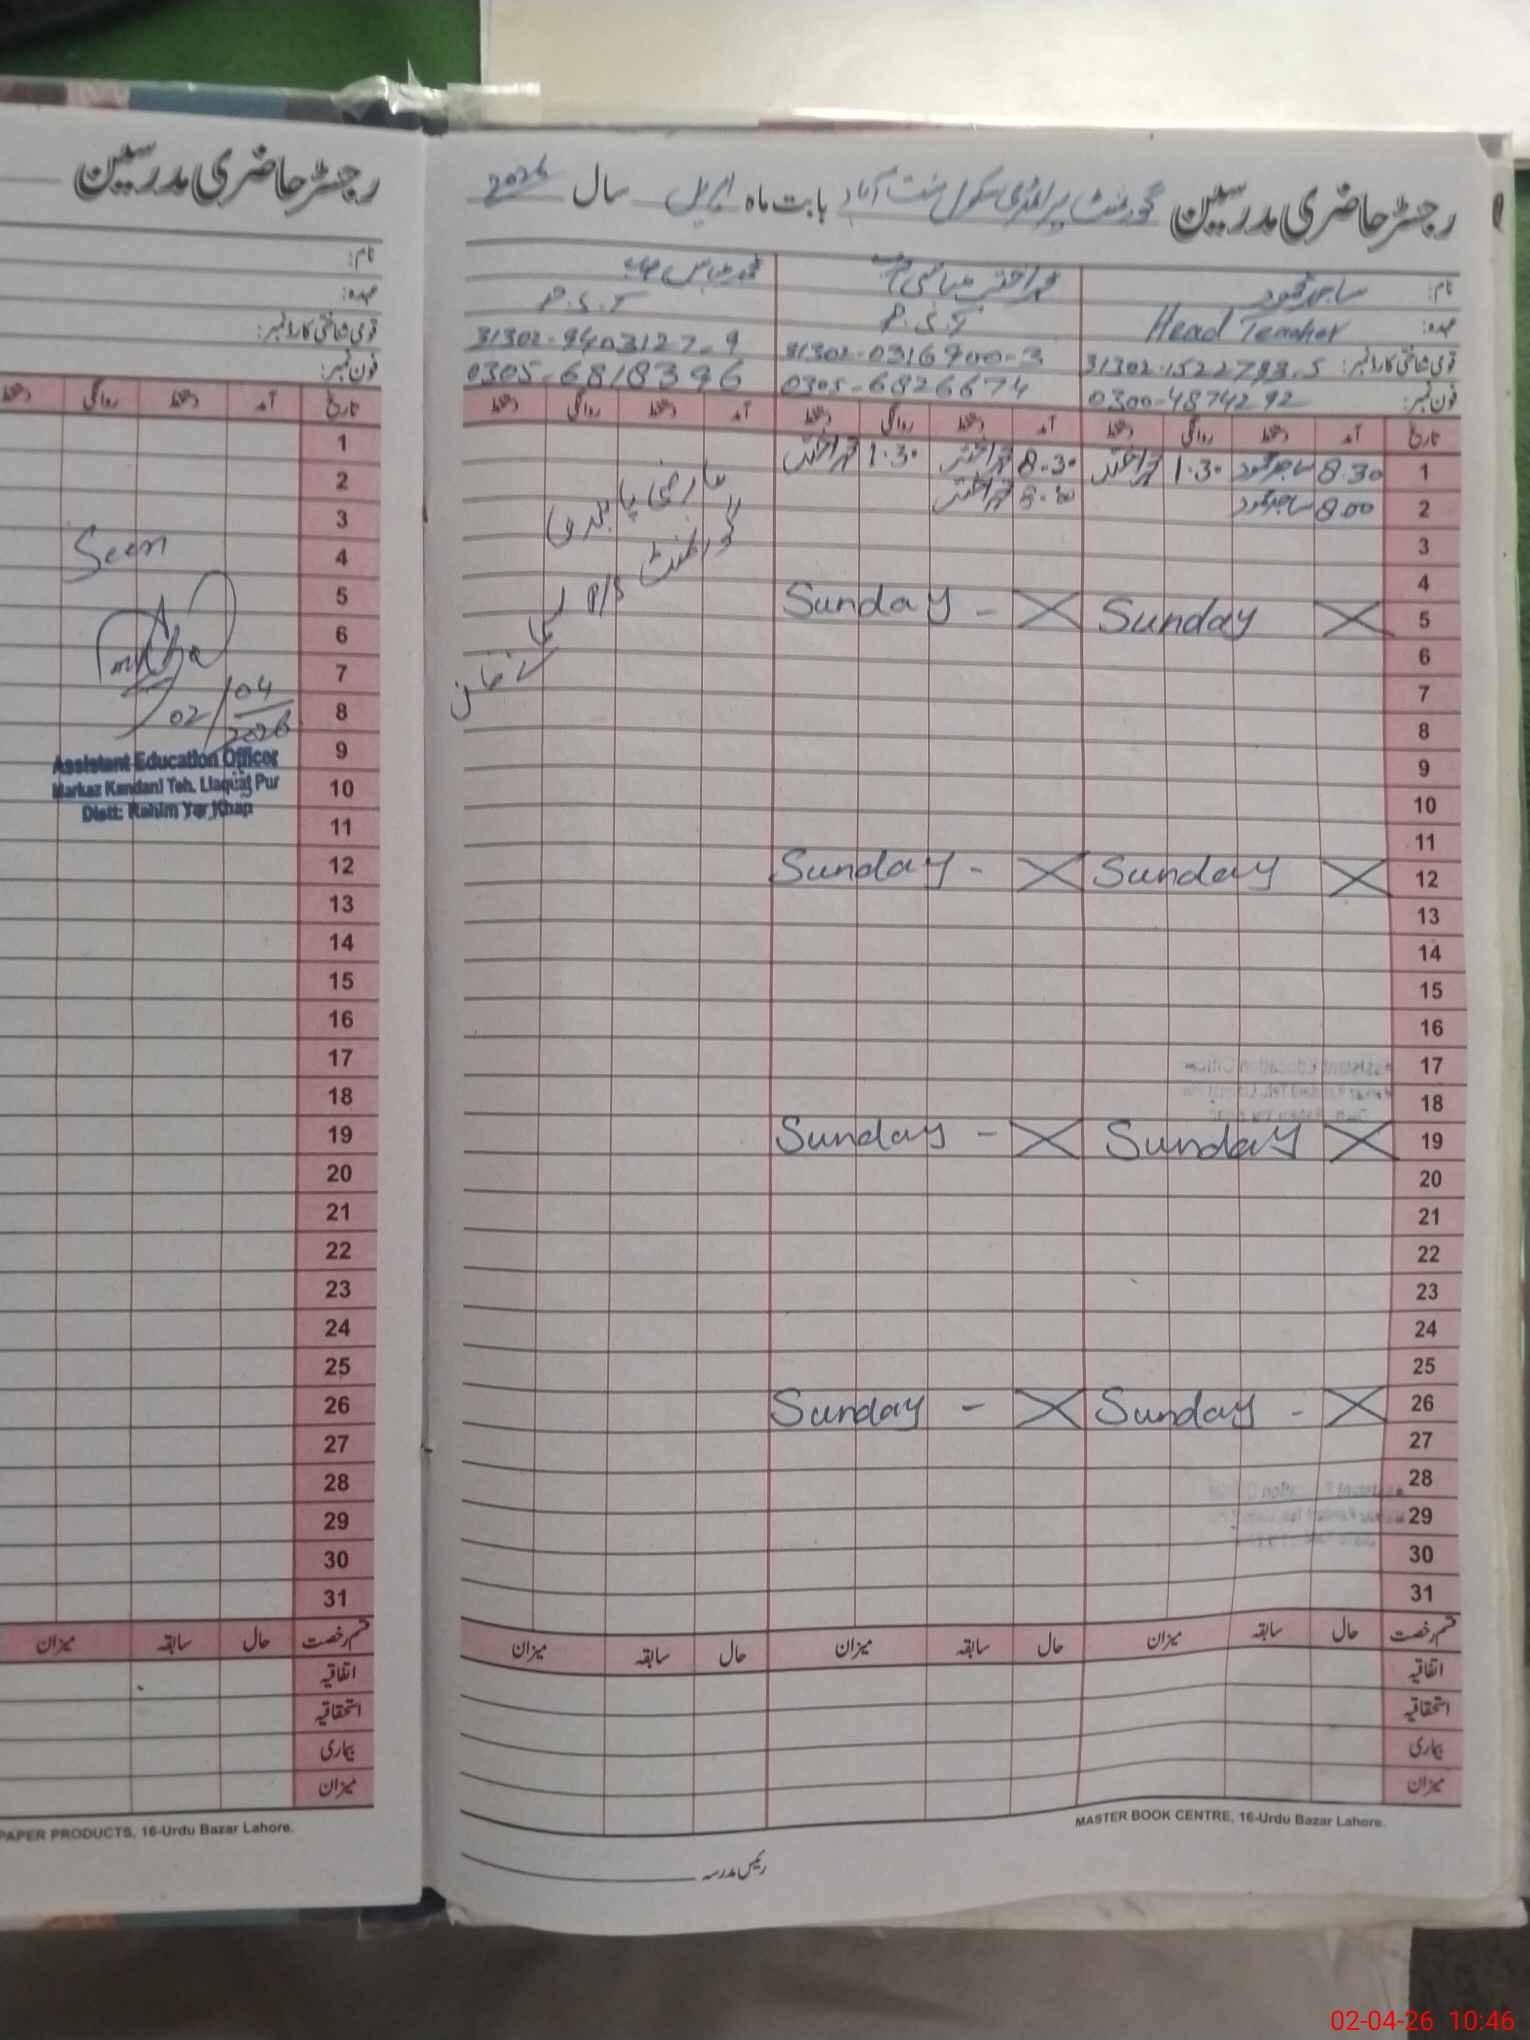 رجسٹر حاضری مدرسین گورنمنٹ پرائمری سکول آباد بابت ماہ اپریل سال 2026
نام: ساجد محمود محمد اختر عباسی
عہدہ: Head Teacher P.S.T P.S.T
قومی شناختی کارڈ نمبر: 31302-1522793-5 31302-0316900-3 31302-9403127-9
فون نمبر: 0300-4874292 0305-6826674 0305-6818396
تاریخ آمد دستخط روانگی دستخط آمد دستخط روانگی دستخط آمد دستخط روانگی دستخط
1 8.30 ساجد محمود 1.30 محمد اختر 8.30 محمد اختر 1.30 محمد اختر
2 8.00 ساجد محمود محمد اختر
عارضی
گورنمنٹ
P/S
3
4
5 X Sunday X - Sunday
6
7
8
9
10
11
12 X Sunday X - Sunday
13
14
15
16
17
18
19 X Sunday X - Sunday
20
21
22
23
24
25
26 X - Sunday X - Sunday
27
28
29
30
31
قسم رخصت حال سابقہ میزان حال سابقہ میزان حال سابقہ میزان
اتفاقیہ
استحقاقیہ
بیماری
میزان
MASTER BOOK CENTRE, 16-Urdu Bazar Lahore.
رئیس مدرسہ
رجسٹر حاضری مدرسین
نام:
عہدہ:
قومی شناختی کارڈ نمبر:
فون نمبر:
تاریخ آمد دستخط روانگی دستخط
1
2
3
4
Seen
5
6
7
8
02/04/2026
9
Assistant Education Officer
10
Markaz Kandani Teh. Liaquat Pur
Distt: Rahim Yar Khan
11
12
13
14
15
16
17
18
19
20
21
22
23
24
25
26
27
28
29
30
31
قسم رخصت حال سابقہ میزان
اتفاقیہ
استحقاقیہ
بیماری
میزان
PAPER PRODUCTS, 16-Urdu Bazar Lahore.
02-04-26 10:46